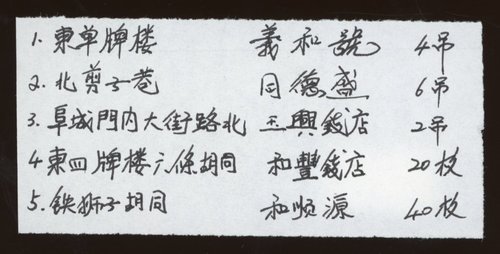 1. 東单牌楼 義和號 4吊
2. 北剪子巷 同德盛 6吊
3. 阜城門内大街路北 玉興錢店 2吊
4 東四牌楼六條胡同 和豐錢店 20枚
5. 铁狮子胡同 和顺源 40枚